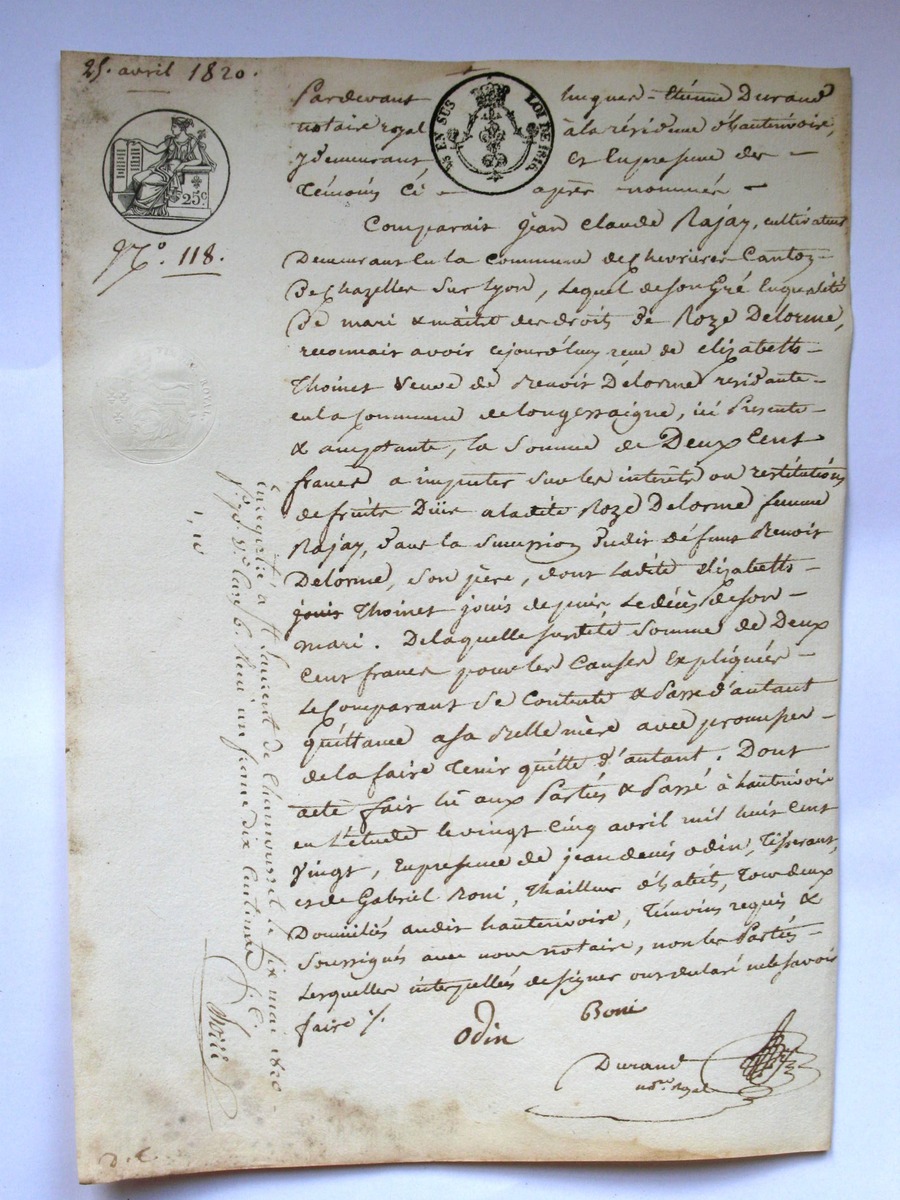 25. avril 1820.
25 EN SUS LOI DE 1816.
25c
N.o 118.
Pardevant hugues - Etienne Durand
notaire royal à la résidence d'hauterivoire,
y demeurant et En presence des -
Témoins Ci - après nommés -
Comparait jean Claude Rajay, cultivateur
Demeurant En la commune de Chevrieres Canton
De Chazelles sur Lyon, Lequel de son Gré En qualité
De mari & maitre des droits de Roze Delorme,
reconnait avoir cejourd'huy reçu de Elizabeth
Thoinet Veuve de Benoit Delorme residante
en la Commune de longessaigne, ici Presente
& acceptante, la Somme de Deux Cent
francs a imputer sur les interets ou restitutions
de fruits Dûs a ladite Roze Delorme femme
Rajay, dans la Succession dudit défunt Benoit
Delorme, son père, dont ladite Elizabeth
jouit Thoinet jouit depuis le décès de son
mari. De laquelle susdite somme de Deux
Cent francs pour les Causes Expliquées -
Le Comparant Se Contente & Passe d'autant
quittance a sa Belle mère avec promesse
de la faire Tenir quitte d'autant. Dont
acte fait lu aux Parties & Passé à hauterivoire
en L'étude le vingt Cinq avril mil huit Cent
Vingt, En presence de jean denis odin, Tisserant,
et de Gabriel Boni, Thailleur d'habits, Tous deux
Domiciliés audit hauterivoire, Témoins requis &
Soussignés avec nous notaire, non les Parties
Lesquelles interpellées de signer ont déclaré ne le savoir
faire ./.
odin Boni
Durand
no.re Royal
Enregistré a St Laurent de Chamousset le six mai 1820
Reçu un franc dix Centimes
1, 10
D. C.